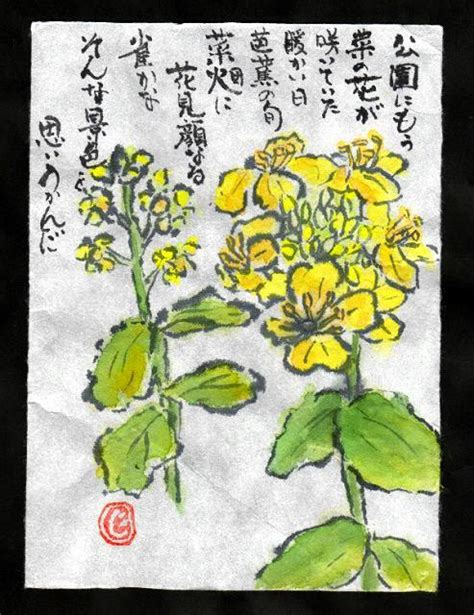 公園にもう
菜の花が
咲いていた
暖かい日
芭蕉の句
菜畑に
花見顔なる
雀かな
そんな景色を
思いうかんだ